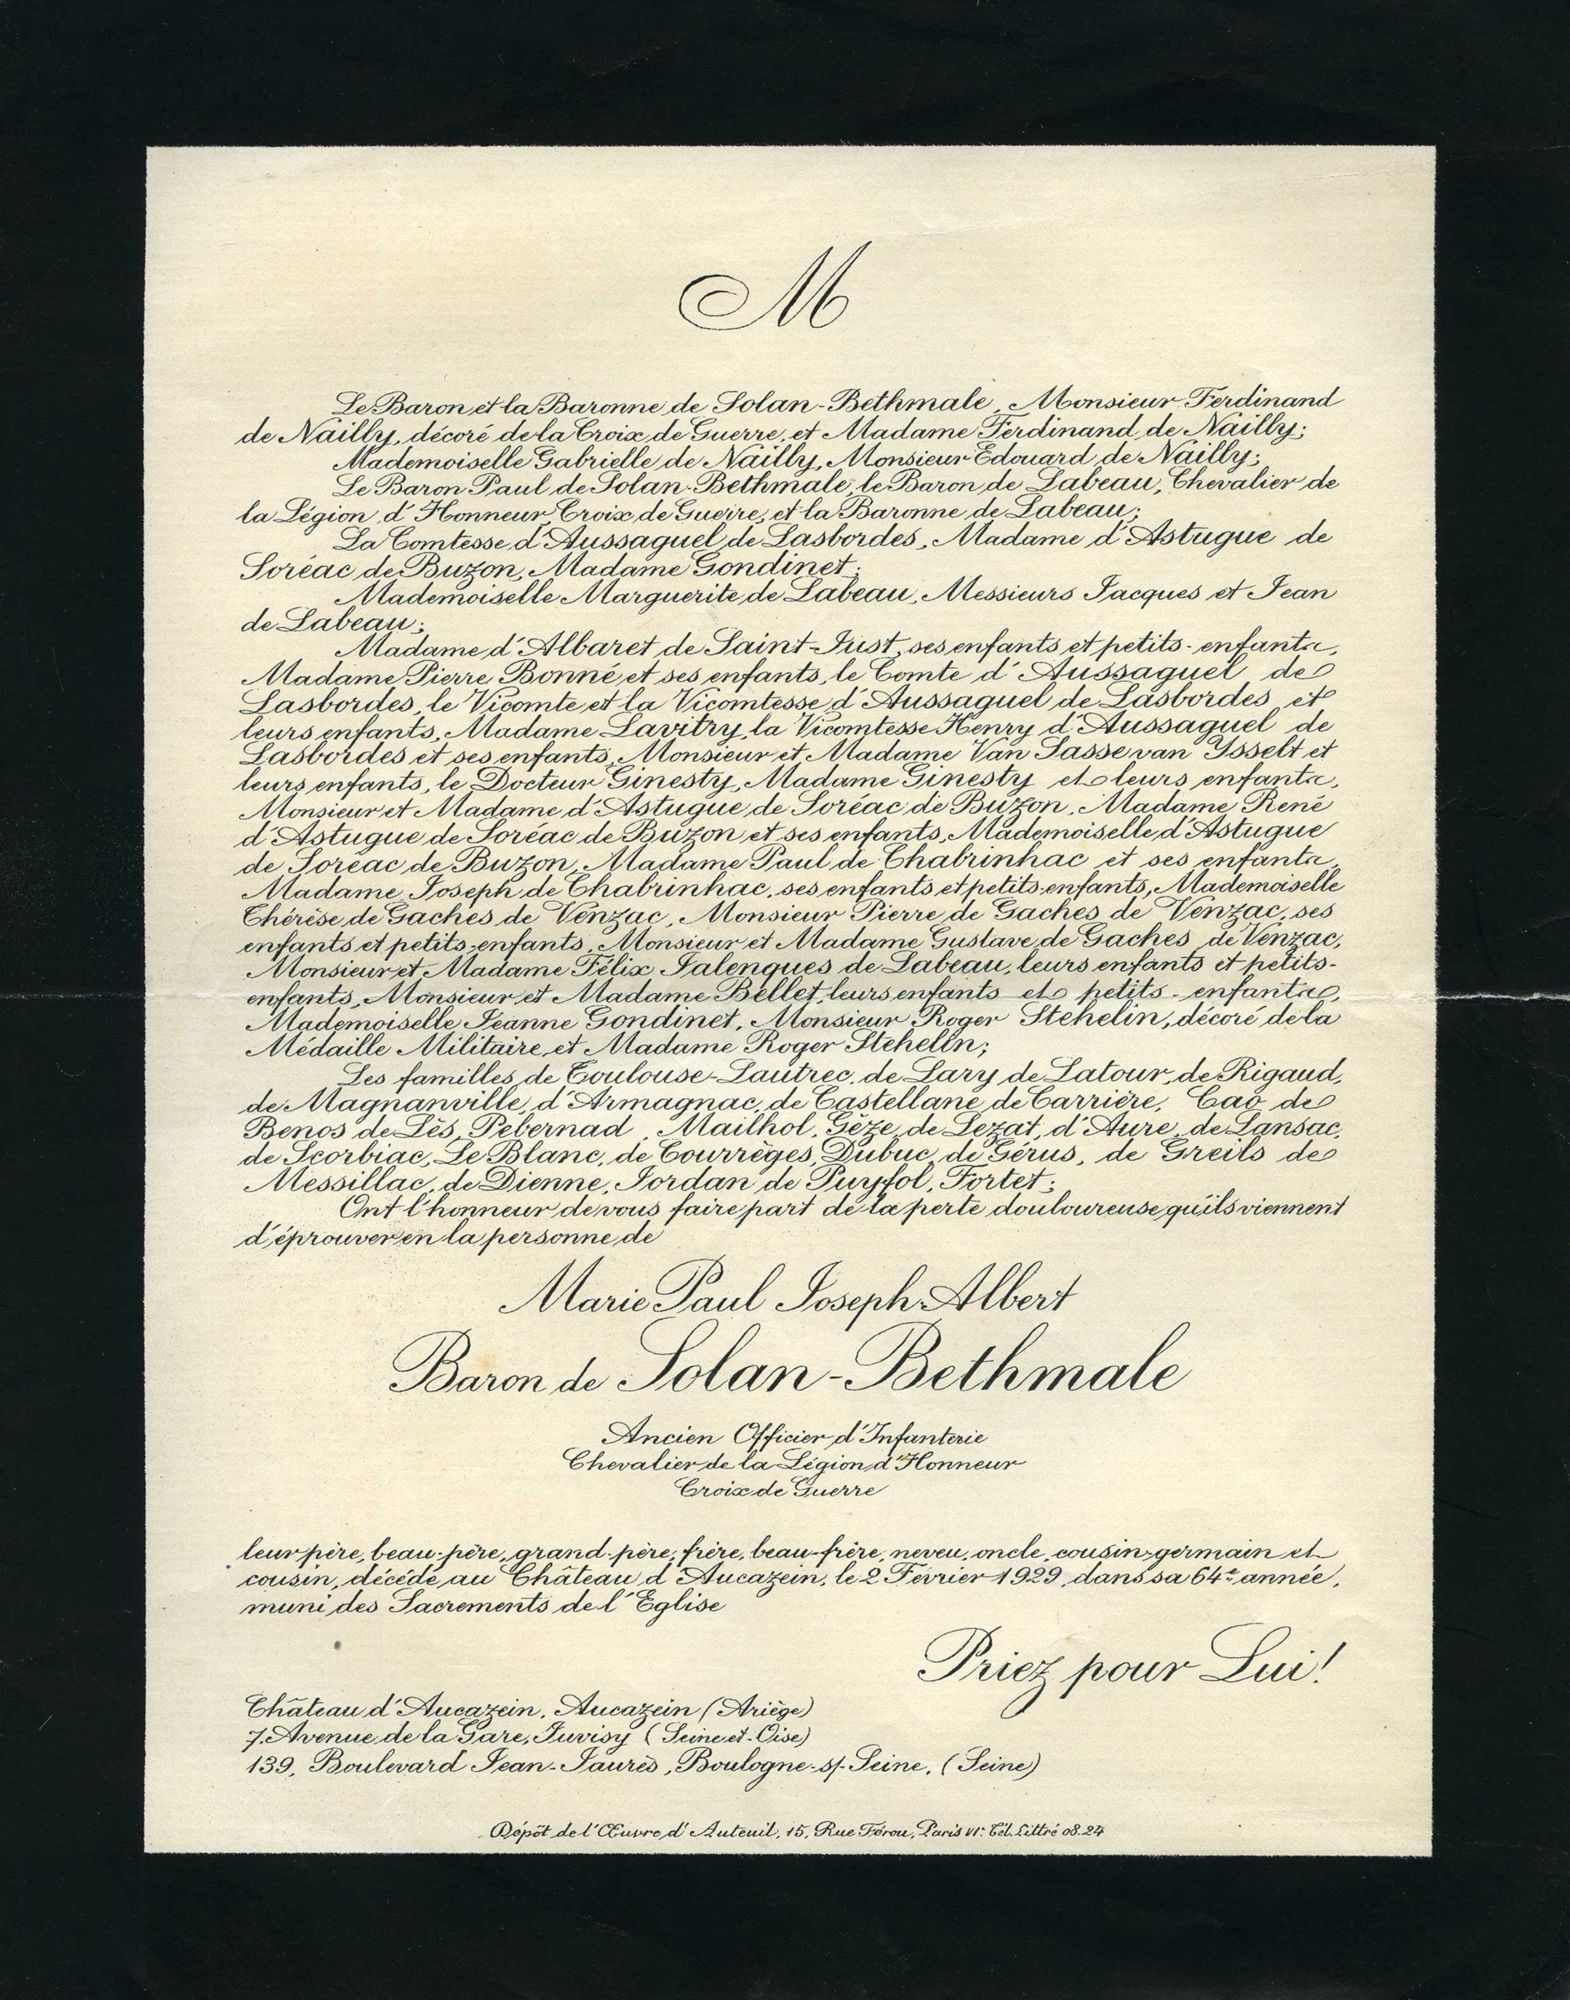 M
Le Baron et la Baronne de Solan-Bethmale, Monsieur Ferdinand
de Nailly, décoré de la Croix de Guerre, et Madame Ferdinand de Nailly;
Mademoiselle Gabrielle de Nailly, Monsieur Edouard de Nailly;
Le Baron Paul de Solan-Bethmale, le Baron de Labeau, Chevalier de
la Légion d'Honneur, Croix de Guerre, et la Baronne de Labeau;
La Comtesse d'Aussaguel de Lasbordes, Madame d'Astugue de
Soréac de Buzon, Madame Gondinet;
Mademoiselle Marguerite de Labeau, Messieurs Jacques et Jean
de Labeau;
Madame d'Albaret de Saint-Just, ses enfants et petits-enfants,
Madame Pierre Bonné et ses enfants, le Comte d'Aussaguel de
Lasbordes, le Vicomte et la Vicomtesse d'Aussaguel de Lasbordes et
leurs enfants, Madame Lavitry, la Vicomtesse Henry d'Aussaguel de
Lasbordes et ses enfants, Monsieur et Madame Van Sasse van Ysselt et
leurs enfants, le Docteur Ginesty, Madame Ginesty et leurs enfants,
Monsieur et Madame d'Astugue de Soréac de Buzon, Madame René
d'Astugue de Soréac de Buzon et ses enfants, Mademoiselle d'Astugue
de Soréac de Buzon, Madame Paul de Chabrinhac et ses enfants,
Madame Joseph de Chabrinhac, ses enfants et petits-enfants, Mademoiselle
Thérèse de Gaches de Venzac, Monsieur Pierre de Gaches de Venzac, ses
enfants et petits-enfants, Monsieur et Madame Gustave de Gaches de Venzac,
Monsieur et Madame Félix Jalenques de Labeau, leurs enfants et petits-
enfants, Monsieur et Madame Bellet, leurs enfants et petits-enfants,
Mademoiselle Jeanne Gondinet, Monsieur Roger Stehelin, décoré de la
Médaille Militaire, et Madame Roger Stehelin;
Les familles de Toulouse-Lautrec, de Lary de Latour, de Rigaud,
de Magnanville, d'Armagnac, de Castellane, de Carrière, Cao de
Benos de Lès, Pebernad, Mailhol, Gèze, de Lezat, d'Aure, de Lansac,
de Scorbiac, Le Blanc, de Courrèges, Dubuc, de Gérus, de Greils de
Messillac, de Dienne, Jordan de Puyfol, Fortet;
Ont l'honneur de vous faire part de la perte douloureuse qu'ils viennent
d'éprouver en la personne de
Marie Paul Joseph Albert
Baron de Solan-Bethmale
Ancien Officier d'Infanterie
Chevalier de la Légion d'Honneur
Croix de Guerre
leur père, beau-père, grand-père, frère, beau-frère, neveu, oncle, cousin-germain et
cousin, décédé au Château d'Aucazein, le 2 Février 1929, dans sa 64e année,
muni des Sacrements de l'Eglise
Priez pour Lui!
Château d'Aucazein, Aucazein (Ariège)
7, Avenue de la Gare, Juvisy (Seine-et-Oise)
139, Boulevard Jean-Jaurès, Boulogne-s/-Seine, (Seine)
Dépôt de l'Œuvre d'Auteuil, 15, Rue Férou, Paris VIe Tél. Littré 08.24